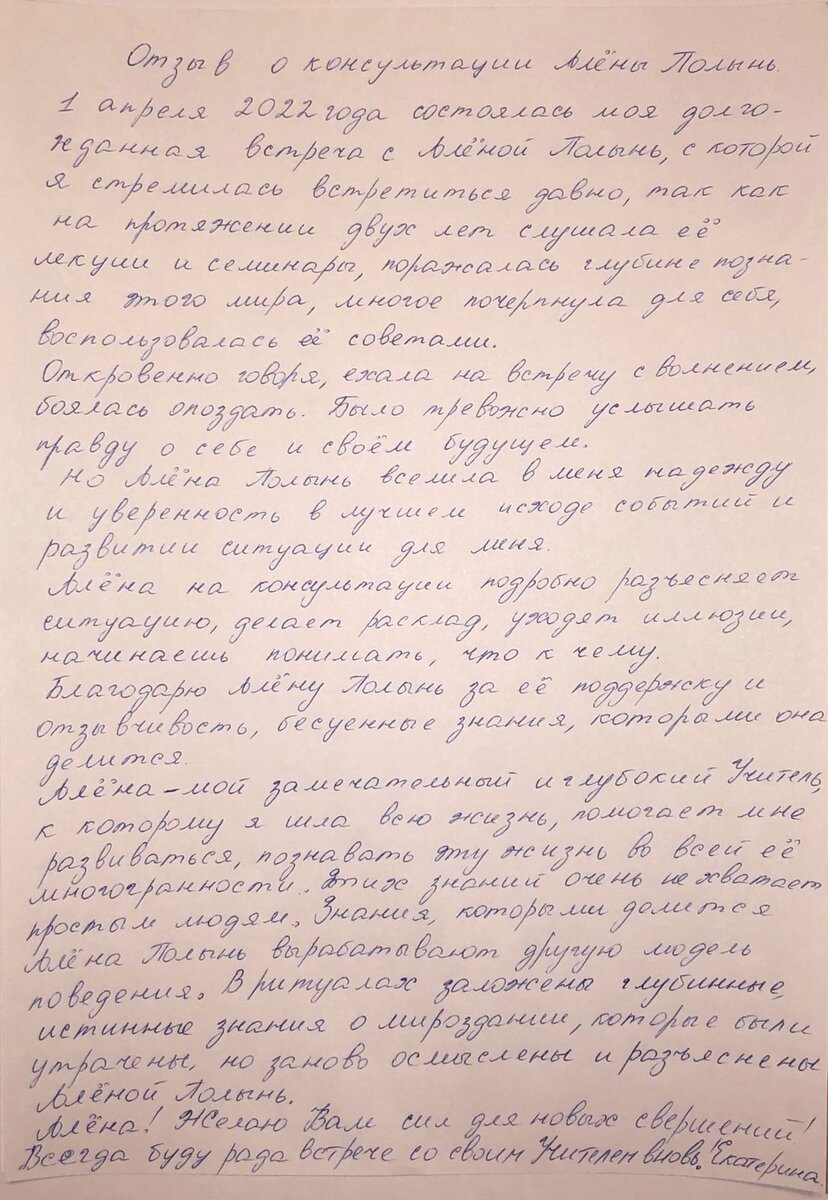 Отзыв о консультации Алёны Полынь.
1 апреля 2022 года состоялась моя долго-
жданная встреча с Алёной Полынь, с которой
я стремилась встретиться давно, так как
на протяжении двух лет слушала её
лекции и семинары, поражалась глубине позна-
ния этого мира, многое почерпнула для себя,
воспользовалась её советами.
Откровенно говоря, ехала на встречу с волнением,
боялась опоздать. Было тревожно услышать
правду о себе и своём будущем.
Но Алёна Полынь вселила в меня надежду
и уверенность в лучшем исходе событий и
развитии ситуации для меня.
Алёна на консультации подробно разъясняет
ситуацию, делает расклад, уходят иллюзии,
начинаешь понимать, что к чему.
Благодарю Алёну Полынь за её поддержку и
отзывчивость, бесценные знания, которыми она
делится.
Алёна – мой замечательный и глубокий Учитель,
к которому я шла всю жизнь, помогает мне
развиваться, познавать эту жизнь во всей её
многогранности. Этих знаний очень не хватает
простым людям. Знания, которыми делится
Алёна Полынь вырабатывают другую модель
поведения. В ритуалах заложены глубинные,
истинные знания о мироздании, которые были
утрачены, но заново осмыслены и разъяснены
Алёной Полынь.
Алёна! Желаю Вам сил для новых свершений!
Всегда буду рада встрече со своим Учителем вновь! Екатерина.